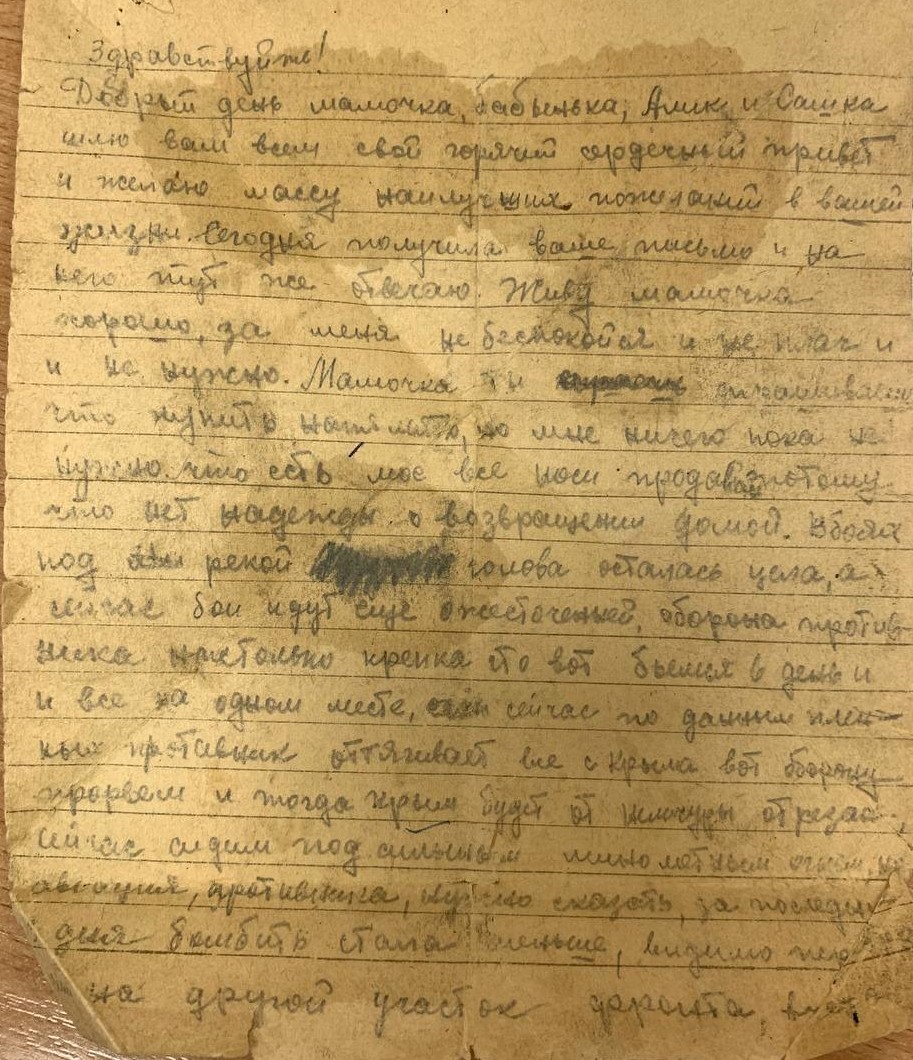 Здравствуйте!
Добрый день мамочка, бабынька, Алик и Сашка
шлю вам всем свой горячий сердечный привет
и желаю массу наилучших пожеланий в вашей
жизни. Сегодня получила ваше письмо и на
него тут же отвечаю. Живу мамочка
хорошо, за меня не беспокойся и не плач и
и не нужно. Мамочка ты спрашиваеш
что купить но мне ничего пока не
нужно что есть мое все носи продавай потому
что нет надежды о возвращении домой. В боях
под рекой голова осталась цела, а
сейчас бои идут еще ожесточенней, оборона против-
ника настолько крепка что вот бьемся в день и
и все на одном месте, сейчас по данным плен-
ных противник оттягивает все с Крыма вот оборону
прорвем и тогда Крым будет от немчуры отрезан,
сейчас сидим под сильным минометным огнем, но
авиация, противника, нужно сказать, за последн
дня бомбить стала меньше, видимо
на другой участок фронта,